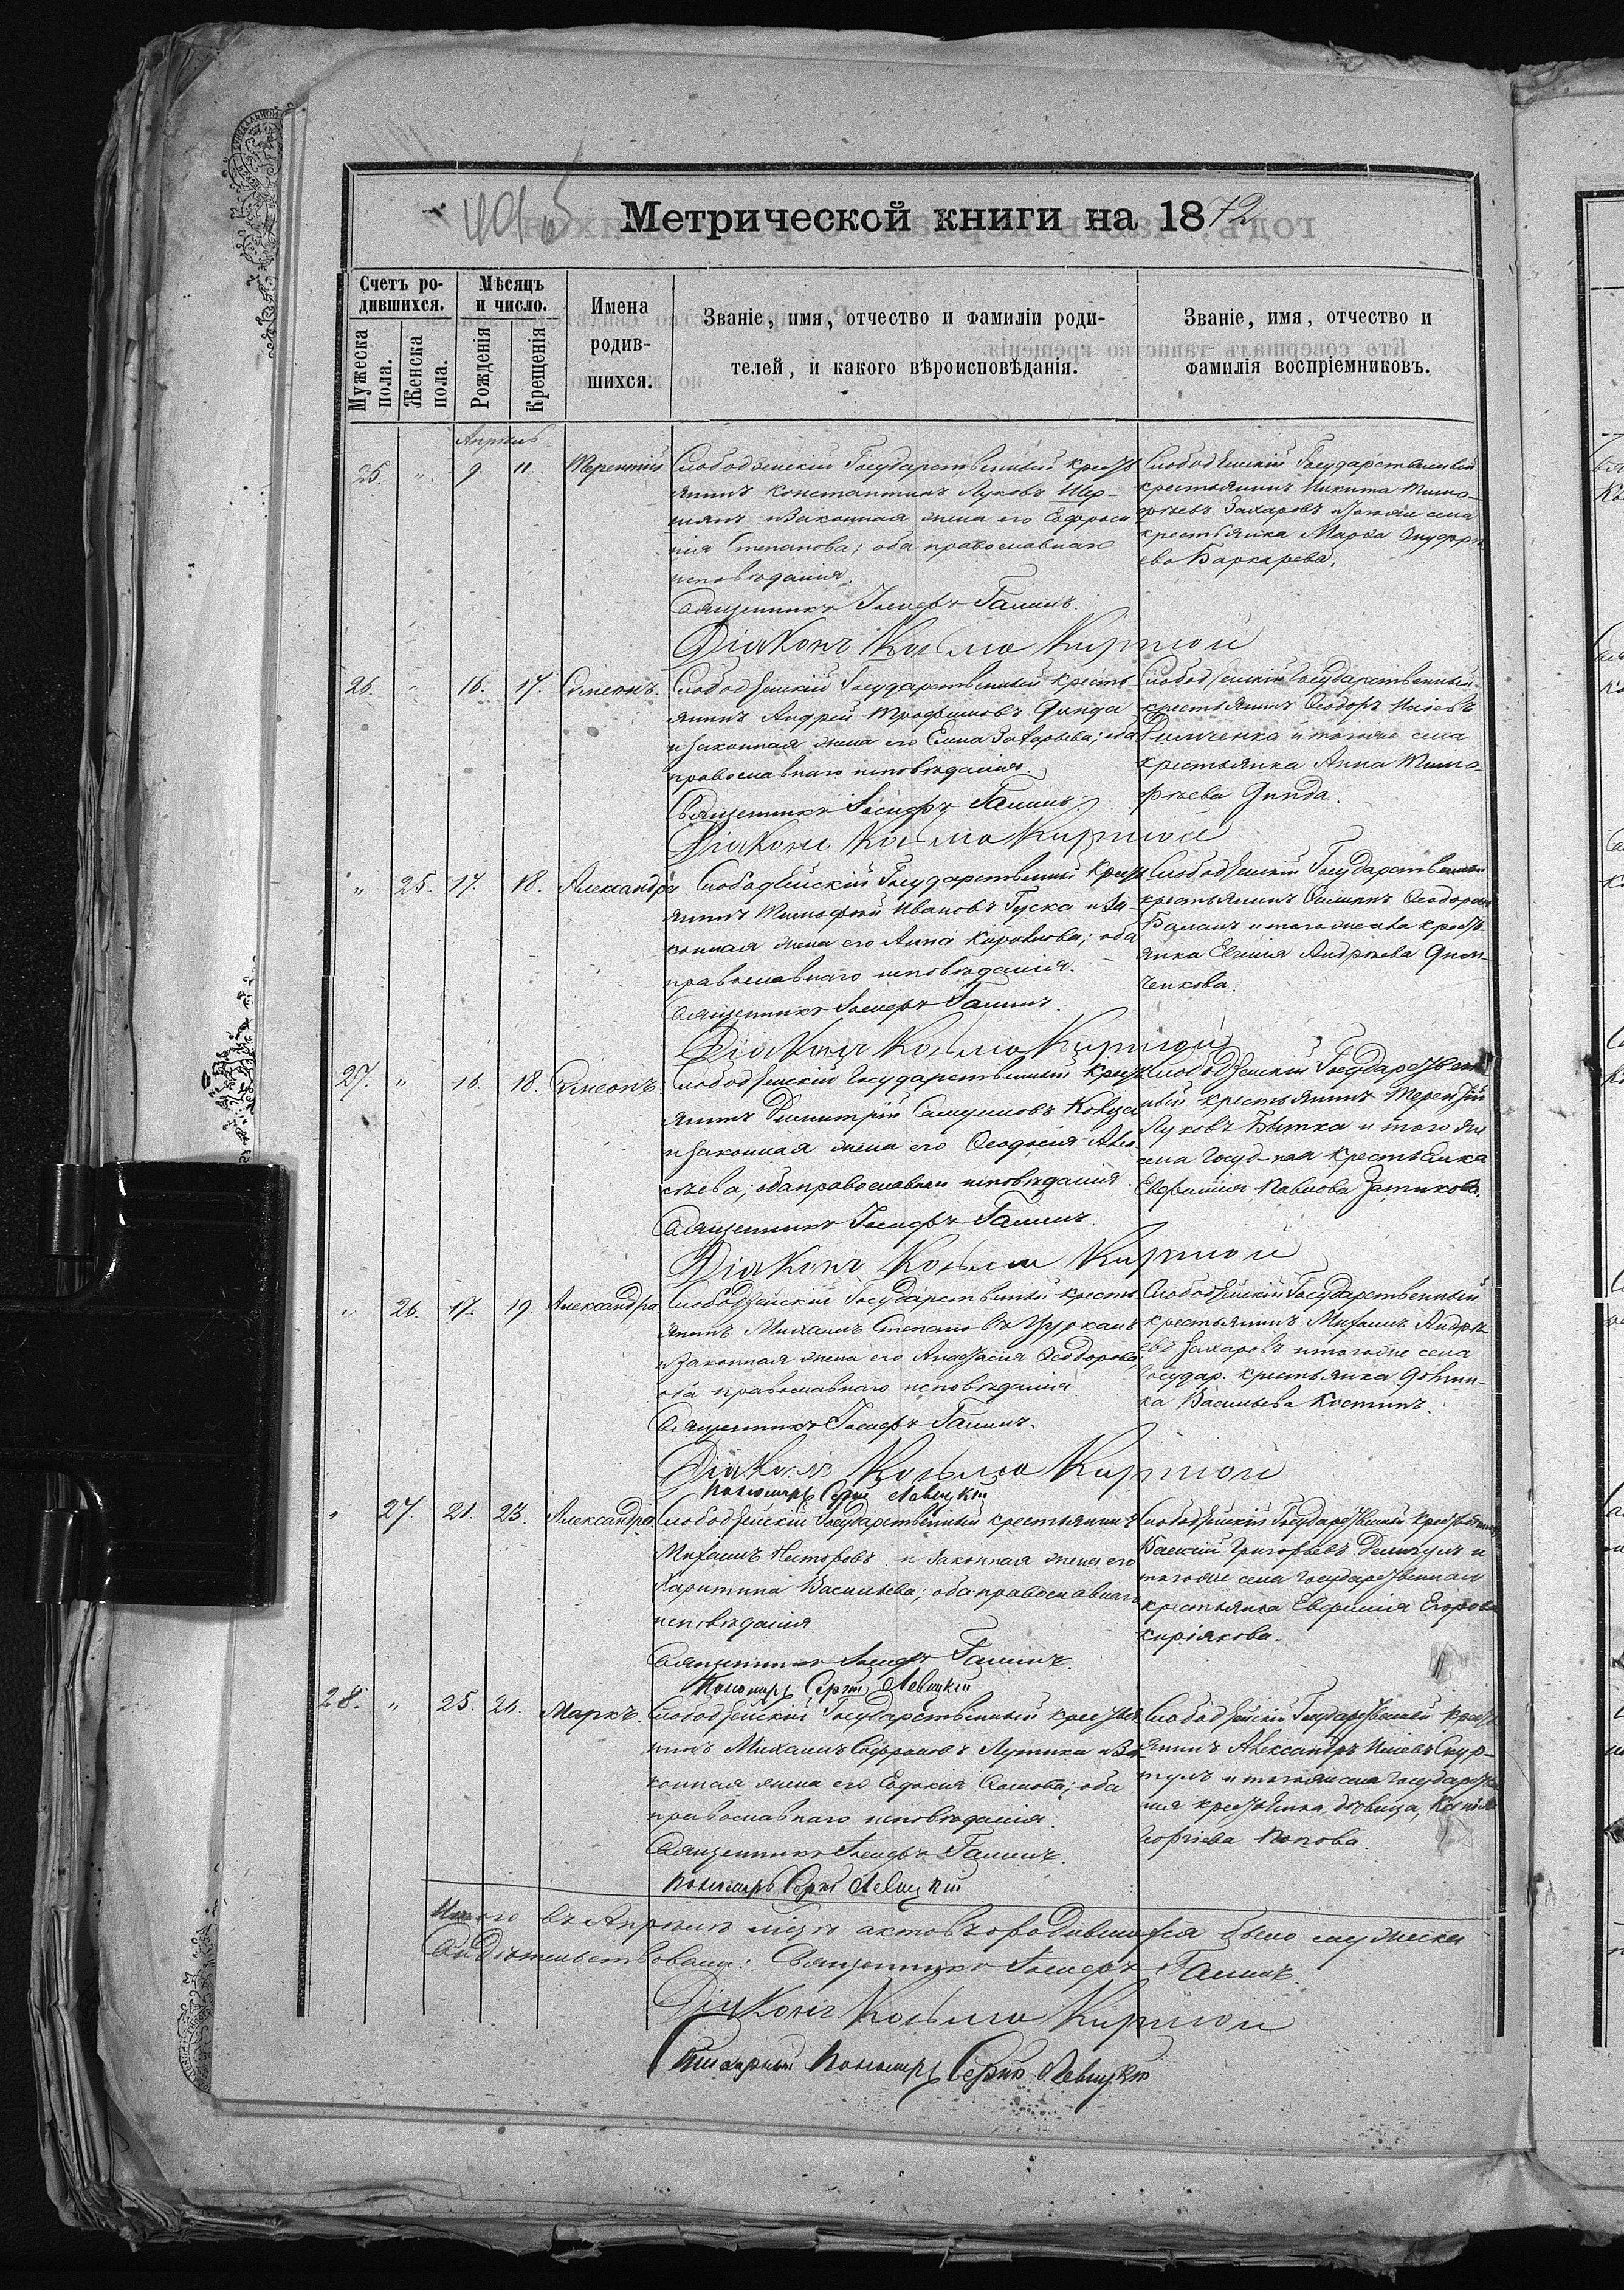 Метрической книги на 1872
Счетъ ро-
дившихся.
Мужеска
пола.
Женска
пола.
Мѣсяцъ
и число.
Рожденія
Крещенія
Имена
родив-
шихся.
Званіе, имя, отчество и фамиліи роди-
телей, и какого вѣроисповѣданія.
Званіе, имя, отчество и
фамилія воспріемниковъ.
Апрѣль
25. " 9. 11. Терентій
Слободзейскій Государственный кресть
янинъ Константинъ Луковъ
и законная жена его Евфроси
нія Степанова; оба православнаго
исповѣданія.
Священникъ Іосифъ Галинъ.
Діаконъ Косьма
Слободзейскій Государственный
крестьянинъ Никита Тимо-
фѣевъ Захаровъ и тогоже села
крестьянка Марѳа Онуфрі
ева Баркарева.
26. " 16. 17. Симеонъ.
Слободзейскій Государственный кресть
янинъ Андрей Трофимовъ
и законная жена его Елена Захарьева; оба
православнаго исповѣданія.
Священникъ Іосифъ Галинъ.
Діаконъ Косьма
Слободзейскій Государственный
крестьянинъ Ѳеодоръ Иліевъ
Димченко и тогоже села
крестьянка Анна Тимо-
фѣева
" 25. 17. 18. Александра
Слободзейскій Государственный кресть
янинъ Тимофей Ивановъ Гуска и за-
конная жена его Анна Кириллова; оба
православнаго исповѣданія.
Священникъ Іосифъ Галинъ.
Діаконъ Косьма
Слободзейскій Государственный
крестьянинъ Ѳеодоровъ
Баланъ и тогоже села кресть-
янка Евгенія Андрѣева Дим-
ченкова.
27. " 16. 18. Симеонъ
Слободзейскій Государственный кресть
янинъ Димитрій Самуиловъ
и законная жена его Ѳеодосія Алек
сѣева; оба православнаго исповѣданія.
Священникъ Іосифъ Галинъ.
Діаконъ Косьма
Слободзейскій Государствен
ный крестьянинъ Терентій
Луковъ Бытка и того же
села Госуд-ная крестьянка
Евфимія Павлова
" 26. 17. 19. Александра
Слободзейскій Государственный кресть
янинъ Михаилъ Степановъ Цурканъ
и законная жена его Анастасія Ѳеодорова,
оба православнаго исповѣданія
Священникъ Іосифъ Галинъ.
Діаконъ Косьма
Пономарь Сергій Левицкій
Слободзейскій Государственный
крестьянинъ Михаилъ Андрѣ-
евъ Захаровъ и тогоже села
Государ. крестьянка
Васильева Костинъ.
" 27. 21. 23. Александра
Слободзейскій Государственный крестьянинъ
Михаилъ Несторовъ и законная жена его
Харитина Васильева; оба православнаго
исповѣданія
Священникъ Іосифъ Галинъ.
Пономарь Сергій Левицкій
Слободзейскій Государственный крестьянинъ
Василій Григорьевъ и
тогоже села Государственная
крестьянка Евфимія Егорова
Киріякова.
28. " 25. 26. Маркъ.
Слободзейскій Государственный кресть
янинъ Михаилъ Софроновъ и за
конная жена его Евдокія; оба
православнаго исповѣданія.
Священникъ Іосифъ Галинъ.
Пономарь Сергій Левицкій
Слободзейскій Государственный кресть
янинъ Александръ Иліевъ Скур-
тулъ и тогоже села Государствен
ная крестьянка, дѣвица, Ксенія
Георгіева Попова.
Итого въ Апрѣлѣ актовъ о родившихся было мужеска
Свидѣтельствовали: Священникъ Іосифъ Галинъ.
Діаконъ Косьма
Пономарь Сергій Левицкій